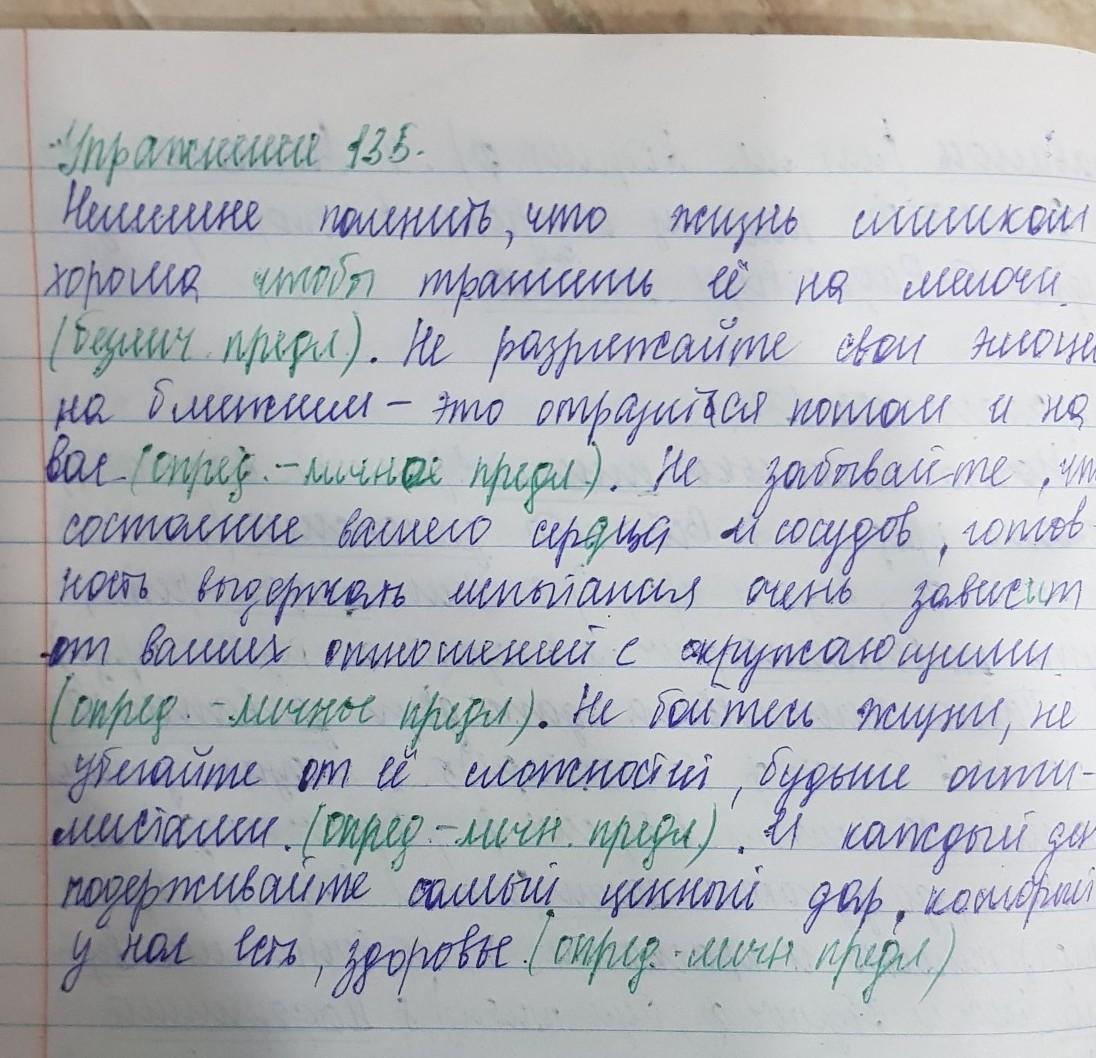 Упражнение 135.
Нелишне помнить, что жизнь слишком
хороша чтобы тратить её на мелочи
(безлич. предл.). Не разряжайте свои эмоци
на ближнем – это отразиться потом и на
вас. (опред. – личное предл.). Не забывайте, чт
состояние вашего сердца и сосудов, готов-
ность выдержать испытания очень зависит
от ваших отношений с окружающими
(опред. – личные предл.). Не бойтесь жизни, не
убегайте от её сложностей, будьте опти-
мистами. (опред. – личн. предл.). И каждый ден
подерживайте самый ценный дар, который
у нас есть, здоровье. (опред. – личн предл.)